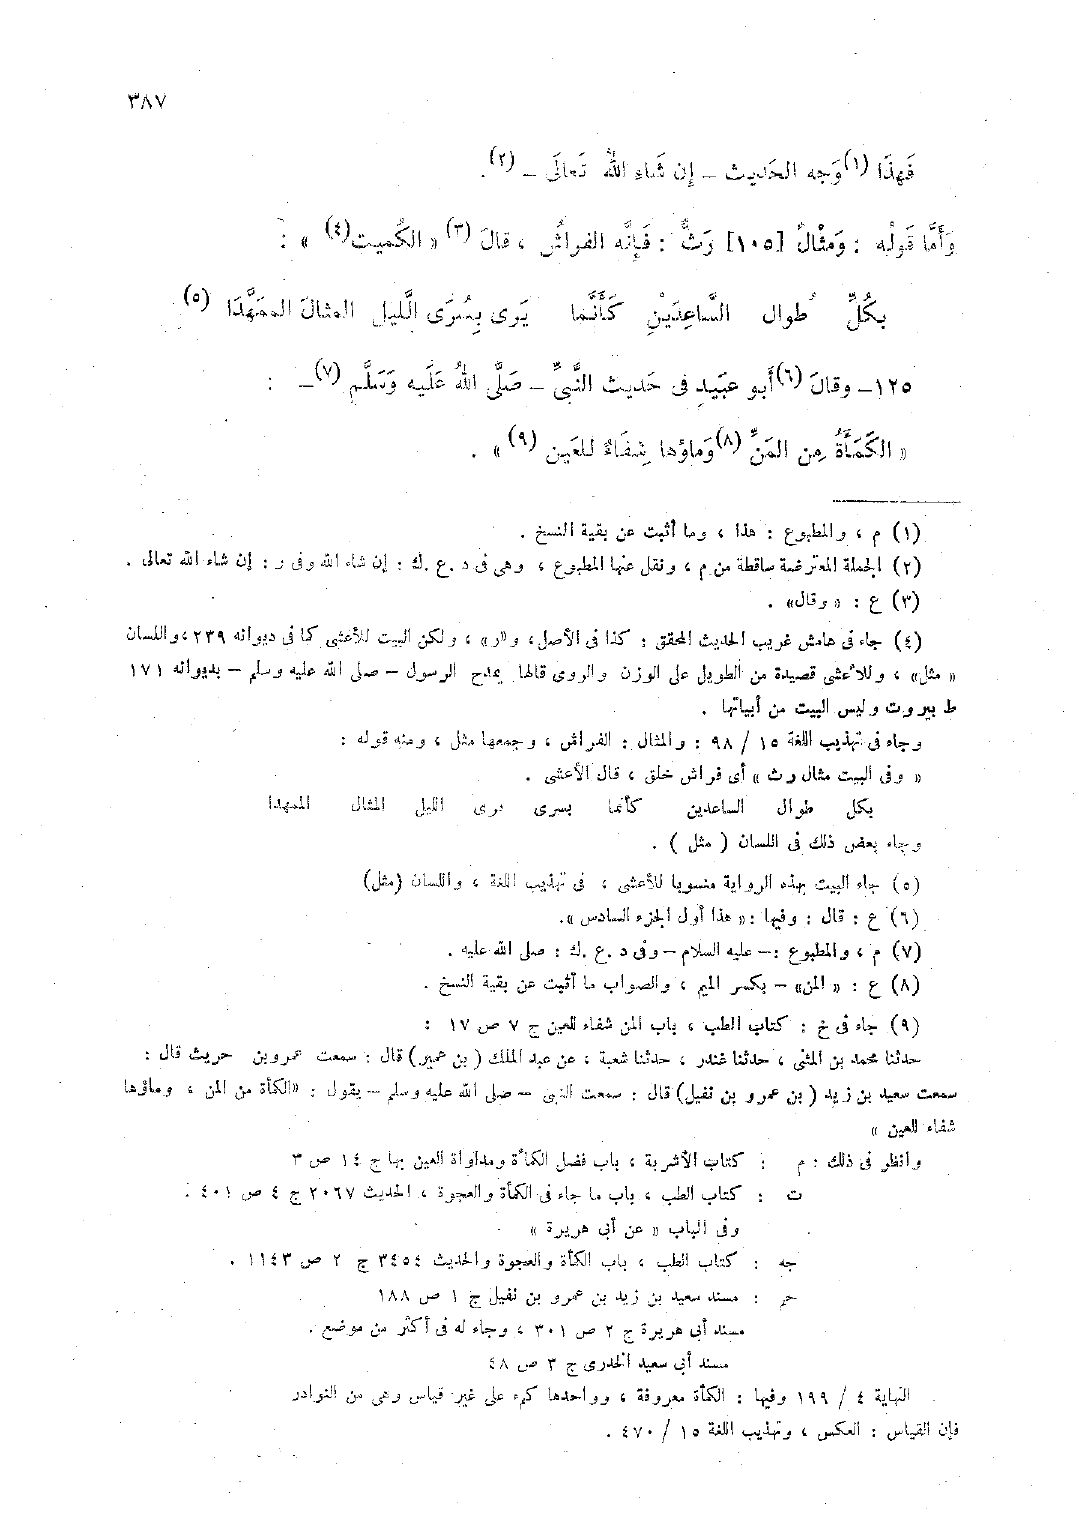 ٣٨٧
فَهذَا (١) وَجه الحَديث – إن شَاءَ اللهُ تَعالَى – (٢).
وَأَمَّا قَولُه : وَمثَالٌ [١٠٥] رَثٌّ : فَإِنَّه الفراشُ ، قالَ (٣) « الكُميت (٤) » :
بكُلِّ طُوال السَّاعِدَيْنِ كَأَنَّما يَرى بِسُرَى الَّليل المثالَ الممَهَّدَا (٥)
١٢٥– وقالَ (٦) أَبو عبَيد فى حَديث النَّبىِّ – صَلَّى اللهُ عَلَيه وَسَلَّم (٧) – :
« الكَمَأَةُ مِن المَنِّ (٨) وَماؤها شِفَاءٌ للعَين (٩) » .
(١) م ، والمطبوع : هذا ، وما أثبت عن بقية النسخ .
(٢) الجملة المعترضة ساقطة من م ، ونقل عنها المطبوع ، وهى فى د . ع . ك : إن شاء الله وفى ر : إن شاء الله تعالى .
(٣) ع : « وقال» .
(٤) جاء فى هامش غريب الحديث المحقق : كذا فى الأصل، و«ر» ، ولكن البيت للأعشى كما فى ديوانه ٢٣٩ ،واللسان
« مثل» ، وللأعشى قصيدة من الطويل على الوزن والروى قالها يمدح الرسول – صلى الله عليه وسلم – بديوانه ١٧١
ط بيروت وليس البيت من أبياتها .
وجاء فى تهذيب اللغة ١٥ / ٩٨ : والمثال : الفراش ، وجمعها مثل ، ومنه قوله :
« وفى البيت مثال رث » أى فراش خلق ، قال الأعشى .
بكل طوال الساعدين كأنما يسرى درى الليل المثال الممهدا
وجاء بعض ذلك فى اللسان ( مثل ) .
(٥) جاء البيت بهذه الرواية منسوبا للأعشى ، فى تهذيب اللغة ، واللسان (مثل)
(٦) ع : قال : وفيها :« هذا أول الجزء السادس ».
(٧) م ، والمطبوع :– عليه السلام – وفى د . ع . ك : صلى الله عليه .
(٨) ع : « المن» – بكسر الميم ، والصواب ما أثبت عن بقية النسخ .
(٩) جاء فى خ : كتاب الطب ، باب المن شفاء للعين ج ٧ ص ١٧ :
حدثنا محمد بن المثنى ، حدثنا غندر ، حدثنا شعبة ، عن عبد الملك ( بن عمير) قال : سمعت عمرو بن حريث قال :
سمعت سعيد بن زيد ( بن عمرو بن نفيل) قال : سمعت النبى – صلى الله عليه وسلم – يقول : «الكمأة من المن ، وماؤها
شفاء للعين »
وانظر فى ذلك : م : كتاب الأشربة ، باب فضل الكمأة ومداواة العين بها ج ١٤ ص ٣
ت : كتاب الطب ، باب ما جاء فى الكمأة والعجوة ، الحديث ٢٠٦٧ ج ٤ ص ٤٠١ .
وفى الباب « عن أبى هريرة »
جه : كتاب الطب ، باب الكمأة والعجوة والحديث ٣٤٥٤ ج ٢ ص ١١٤٣ .
حم : مسند سعيد بن زيد بن عمرو بن نفيل ج ١ ص ١٨٨
مسند أبى هريرة ج ٢ ص ٣٠١ ، وجاء له فى أكثر من موضع .
مسند أبى سعيد الخدرى ج ٣ ص ٤٨
النهاية ٤ / ١٩٩ وفيها : الكمأة معروفة ، وواحدها كمء على غير قياس وهى من النوادر
فإن القياس : العكس ، وتهذيب اللغة ١٥ / ٤٧٠ .